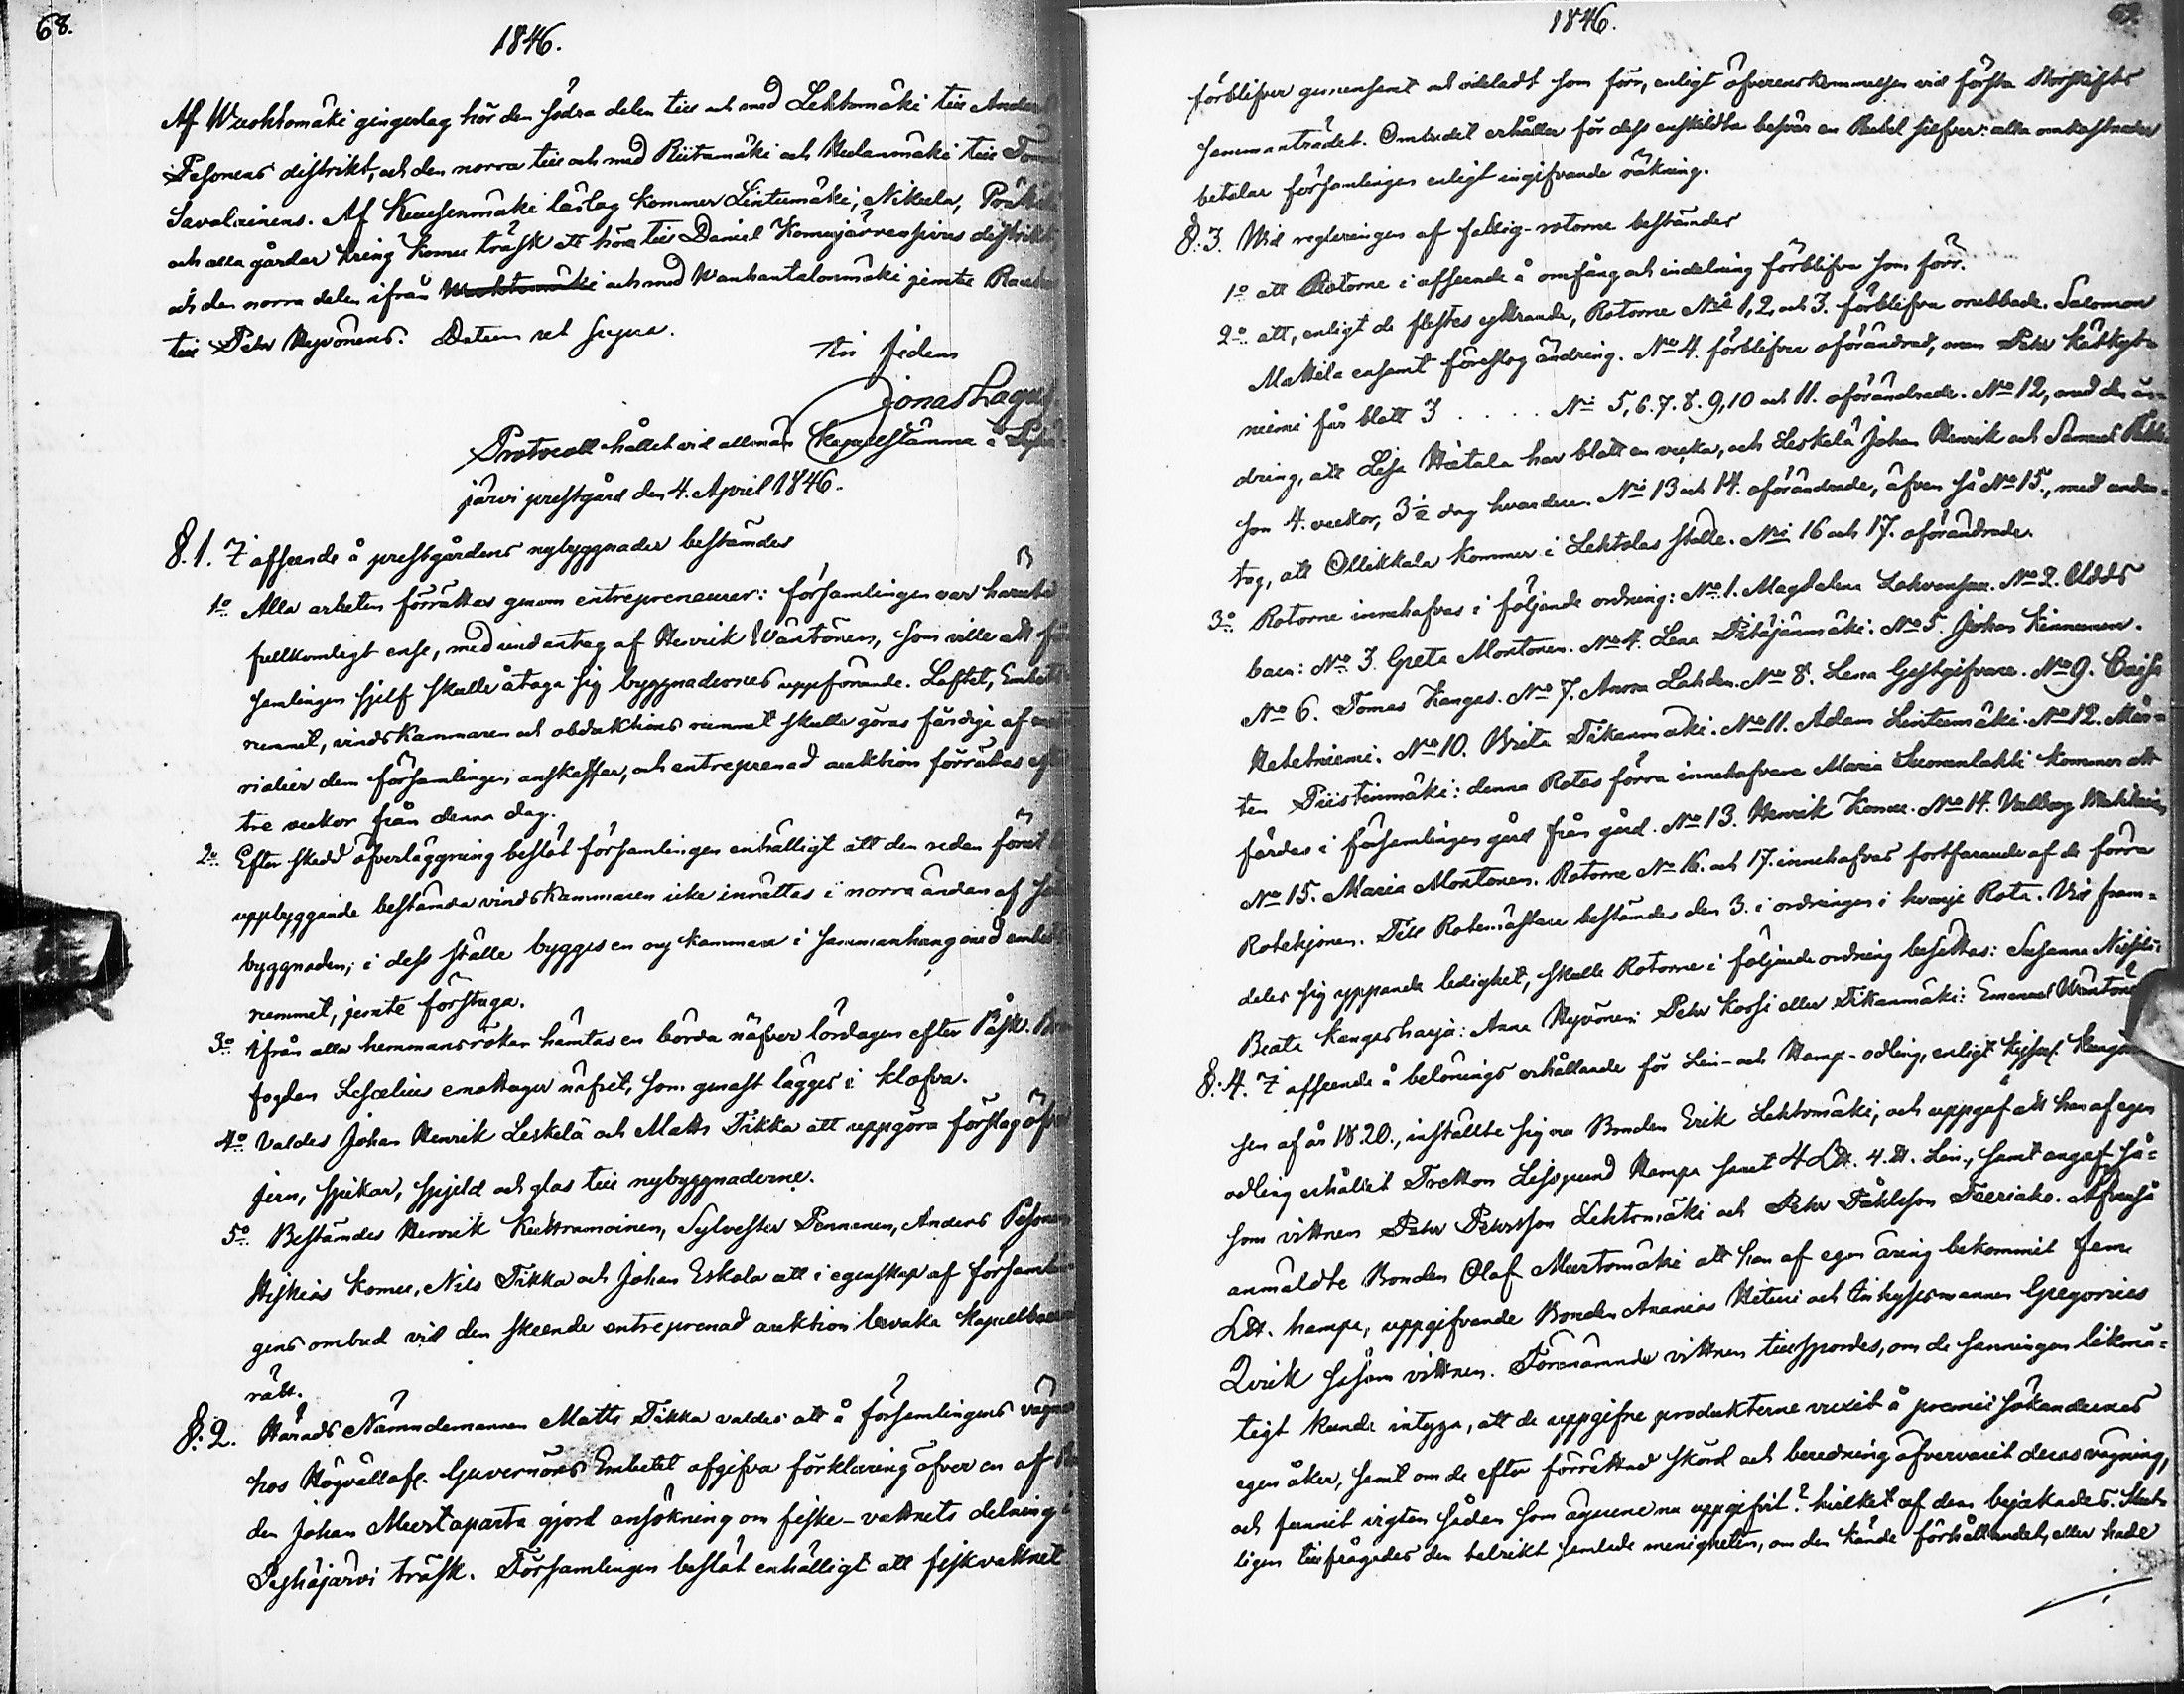 68.
1846.
Af Wuohtomäki gingerlag hör den södra delen till och med Lehtomäki till Anders
Pesonens distrikt, och den norra till och med Riitamäki och Aulanmäki till
Savolainens. Af Kuusenmäki läslag kommer Lintumäki, Nikula,
och alla gårdar kring Komu träsk att höra till Daniel Komujärvensivus distrikt,
och den norra delen ifrån och med Wanhantalonmäki jemte
till Pehr Hyvönens. Datum ut supra.
in fidem
Jonas Lagus
Protocoll hållet vid allmän Kapellstämma i Pyhä-
järvi prestgård den 4. April 1846.
§. 1. I afseende å prestgårdens nybyggnader bestämdes
1o Alla arbeten förrättas genom entrepreneurer: församlingen var härutinnan
fullkomligt ense, med undantag af Henrik Wäntönen, som ville att för-
samlingen sjelf skulle åtaga sig byggnadernes uppförande. Loftet, Embets
rummet, vindskammaren och obduktions rummet skulle göras färdiga af mate-
rialier dem församlingen anskaffar, och entreprenad auktion förrättas efter
tre veckor från denna dag.
2o Efter skedd öfverläggning beslöt församlingen enhälligt att den redan förut till
uppbyggande bestämda vindskammaren icke inrättas i norra ändan af
byggnaden; i dess ställe bygges en ny kammare i sammanhang med embets
rummet, jemte förstuga.
3o Ifrån alla hemmansrökar hämtas en börda näfver lördagen efter Påsk.
fogden Lescelius emottager näfret, som genast lägges i klofva.
4o Valdes Johan Henrik Leskelä och Matts Tikka att uppgöra förslag öfver
jern, spikar, spjeld och glas till nybyggnaderne.
5o Bestämdes Henrik Kuttramoinen, Sylvester Pennanen, Anders Pesonen,
Hiskias Komu, Nils Tikka och Johan Eskola att i egenskap af församlin-
gens ombud vid den skeende entreprenad auktion bevaka Kapellboernes
rätt.
§. 2. Härads Nämndemannen Matts Tikka valdes att å församlingens vägnar
hos Högvällofl. Guvernörs Embetet afgifva förklaring öfver en af
den Johan Murtoparta gjord ansökning om fiske-vattnets delning i
Pyhäjärvi träsk. Församlingen beslöt enhälligt att fiskvattnet
1846.
69.
förblifver gemensamt och odeladt som förr, enligt öfverenskommelsen vid första Storskifts
sammanträdet. Ombudet erhåller för dess enskildta besvär en Rubel silfver: alla omkostnader
betalar församlingen enligt ingifvande räkning.
§. 3. Wid regleringen af fattig-rotorne bestämdes
1o att Rotorne i afseende å omfång och indelning förblifva som förr.
2o att, enligt de flestes yttrande, Rotorne Nis 1, 2, och 3. förblifva orubbade. Salomon
Mattila ensamt föreslog ändring. No 4. förblifver oförändrad, men Pehr Kätkyt-
niemi får blott 3 . . . . Ni 5, 6. 7. 8. 9, 10 och 11. oförändrade. No 12, med den än-
dring, att Lisa Hietala har blott en vecka, och Leskelä Johan Henrik och Samuel
son 4. veckor, 3½ dag hvardera. Ni 13 och 14. oförändrade, äfven så No 15., med undan-
tag, att Ollikkala kommer i Lehtolas ställe. Ni 16 och 17. oförändrade.
3o Rotorne innehafvas i följande ordning: No 1. Magdalena No 2.
No 3. Greta Montonen. No 4. Lena Pitäjänmäki. No 5. Johan Kinnunen.
No 6. Tomas Kangas. No 7. Anna Lahden. No 8. Lena Gestgifvare. No 9. Caisa
No 10. Brita Tikanmäki. No 11. Adam Lintumäki. No 12. Mår-
ten Piistinmäki: denna Rotas förra innehafvare Maria Suomenlahti kommer att
färdas i församlingen gård från gård. No 13. Henrik Komu. No 14. Valborg
No 15. Maria Montonen. Rotorne No 16. och 17. innehafvas fortfarande af de förra
Rotehjonen. Till Rotemästare bestämdes den 3. i ordningen i hvarje Rota. Vid fram-
deles sig yppande ledighet, skulle Rotorne i följande ordning besättas: Susanna
Beata Kangasharju: Anna Hyvönen: Pehr Kossi eller Tikanmäki: Emanuel Wäntönen
§. 4. I afseende å belönings erhållande för Lin- och Hamp-odling, enligt
sen af år 1820., inställte sig nu Bonden Erik Lehtomäki, och uppgaf att han af egen
odling erhållit Tretton Lispund Hampa samt 4 L℔. 4. ℔. Lin., samt angaf så-
som vittnen Pehr Pehrsson Lehtomäki och Pehr Påhlsson Teeriaho. Äfvenså
anmäldte Bonden Olof Murtomäki att han af egen äring bekommit fem
L℔. hampa, uppgifvande Bonden Ananias Hituri och Inhysesmannen Gregorius
Qvick såsom vittnen. Förenämnde vittnen tillspordes, om de sanningen likmä-
tigt kunde intyga, att de uppgifne produkterne vuxit å premii sökandernes
egen åker, samt om de efter förrättad skörd och beredning öfvervarit deras vägning,
och funnit vigten sådan som ägarene nu uppgifvit? hvilket af dem bejakades. Slut-
ligen tillfrågades den talrikt samlade menigheten, om den kände förhållandet, eller hade